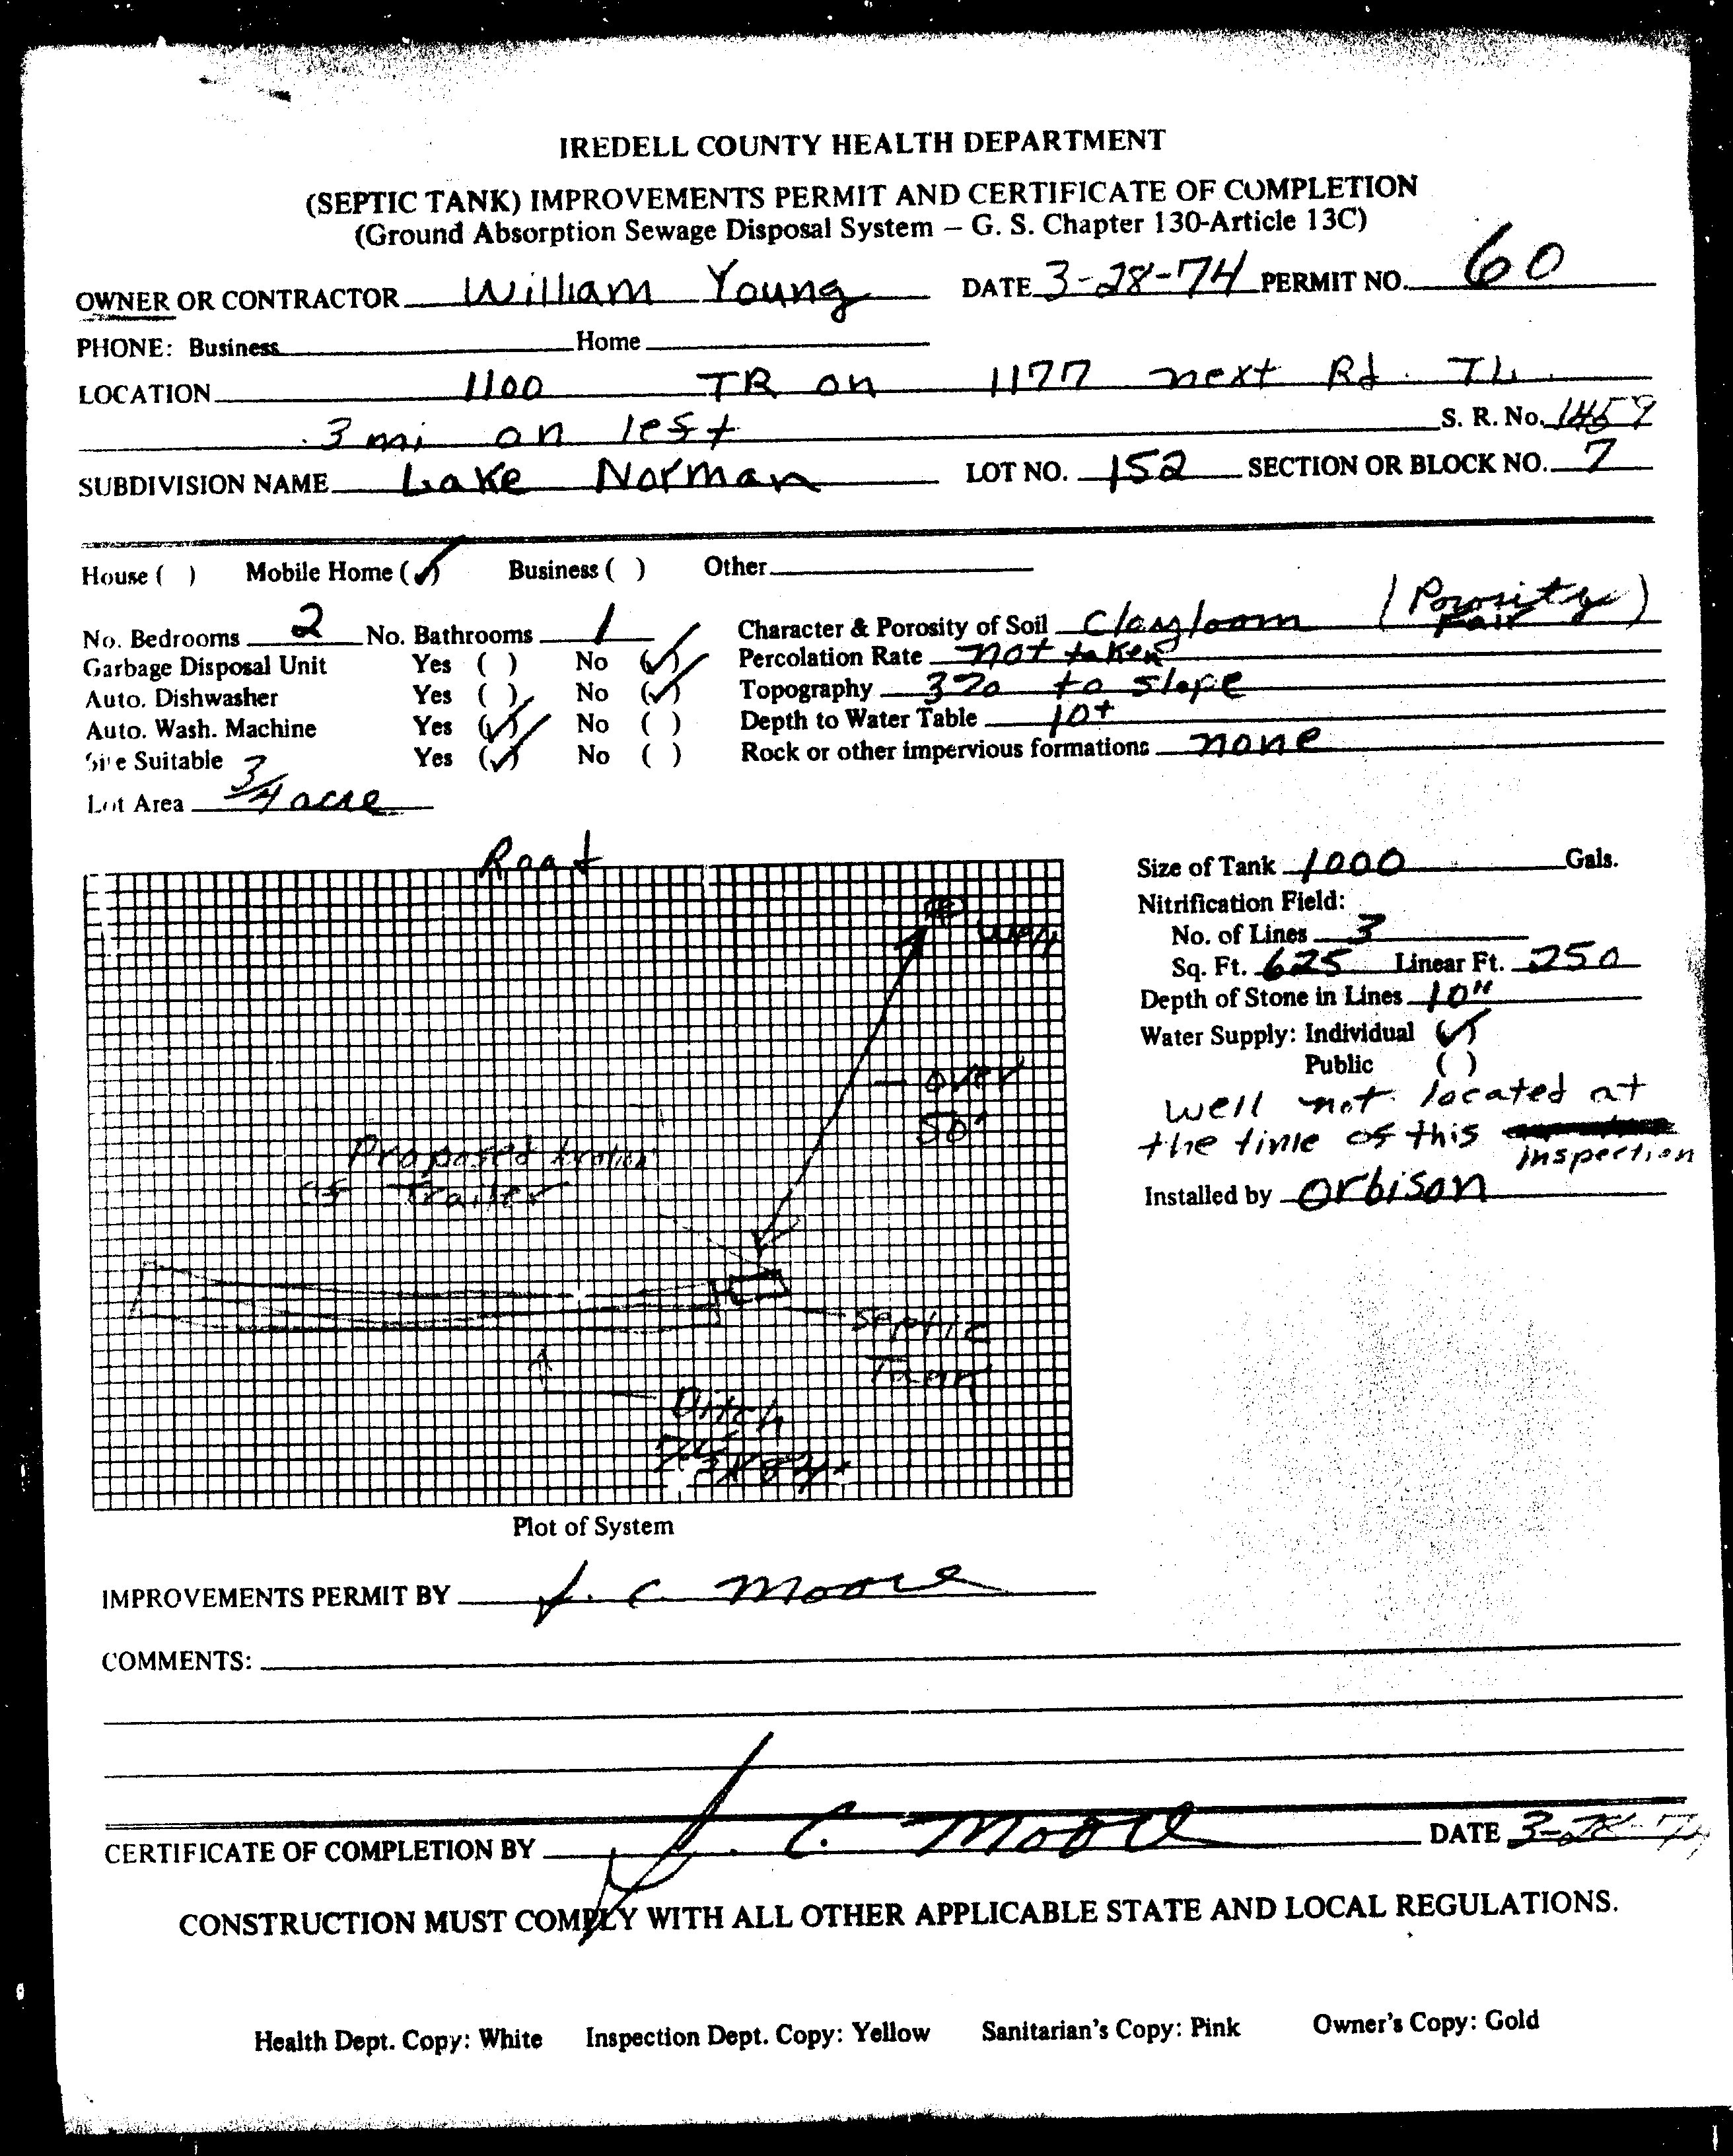 IREDELL COUNTY HEALTH DEPARTMENT
(SEPTIC TANK) IMPROVEMENTS PERMIT AND CERTIFICATE OF COMPLETION
(Ground Absorption Sewage Disposal System – G. S. Chapter 130-Article 13C)
OWNER OR CONTRACTOR William Young DATE 3-28-74 PERMIT NO. 60
PHONE: Business Home
LOCATION 1100 TR on 1177 next Rd. TL
.3 mi on left S. R. No.
SUBDIVISION NAME Lake Norman LOT NO. 152 SECTION OR BLOCK NO. 7
House ( ) Mobile Home (✓) Business ( ) Other
No. Bedrooms 2 No. Bathrooms 1 Character & Porosity of Soil Clayloom (Porosity Fair)
Garbage Disposal Unit Yes ( ) No (✓) Percolation Rate not taken
Auto. Dishwasher Yes ( ) No (✓) Topography 3% to slope
Auto. Wash. Machine Yes (✓) No ( ) Depth to Water Table 10+
Site Suitable Yes (✓) No ( ) Rock or other impervious formations none
Lot Area 3/4 acre
Road
Size of Tank 1000 Gals.
Nitrification Field:
Well
No. of Lines 3
Sq. Ft. 625 Linear Ft. 250
Depth of Stone in Lines 10"
Water Supply: Individual (✓)
Public ( )
over
50'
well not located at
the time of this inspection
Proposed location
of Trailer
Installed by Orbison
Septic
Tank
Ditch
Plot of System
IMPROVEMENTS PERMIT BY J. C. Moore
COMMENTS:
CERTIFICATE OF COMPLETION BY J. C. Moore DATE 3-28-74
CONSTRUCTION MUST COMPLY WITH ALL OTHER APPLICABLE STATE AND LOCAL REGULATIONS.
Health Dept. Copy: White Inspection Dept. Copy: Yellow Sanitarian's Copy: Pink Owner's Copy: Gold